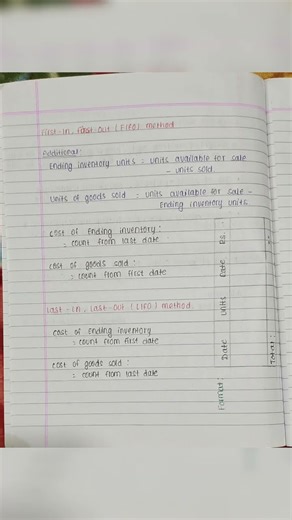 First In, First Out (FIFO) method
Additional:
Ending inventory units = units available for sale
- units sold
Units of goods sold = units available for sale -
Ending inventory units
cost of Ending inventory:
= count from last date
cost of goods sold:
= count from first date
Last-In, Last-Out (LIFO) method
cost of Ending inventory
= count from first date
cost of goods sold:
= count from last date
Format:
Date Units Rate Rs.
Total: